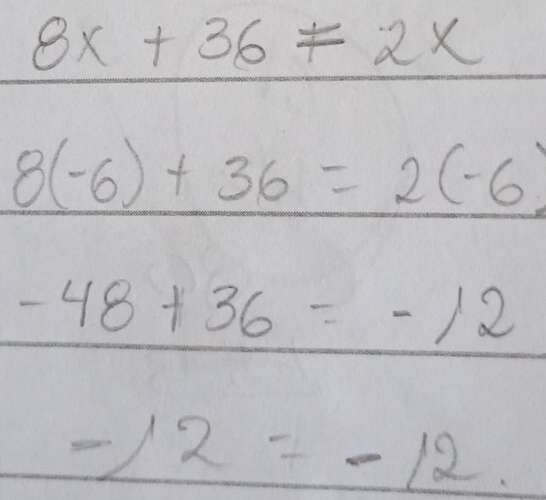 8x + 36 ≠ 2x
8(-6) + 36 = 2(-6)
-48 + 36 = -12
-12 = -12.